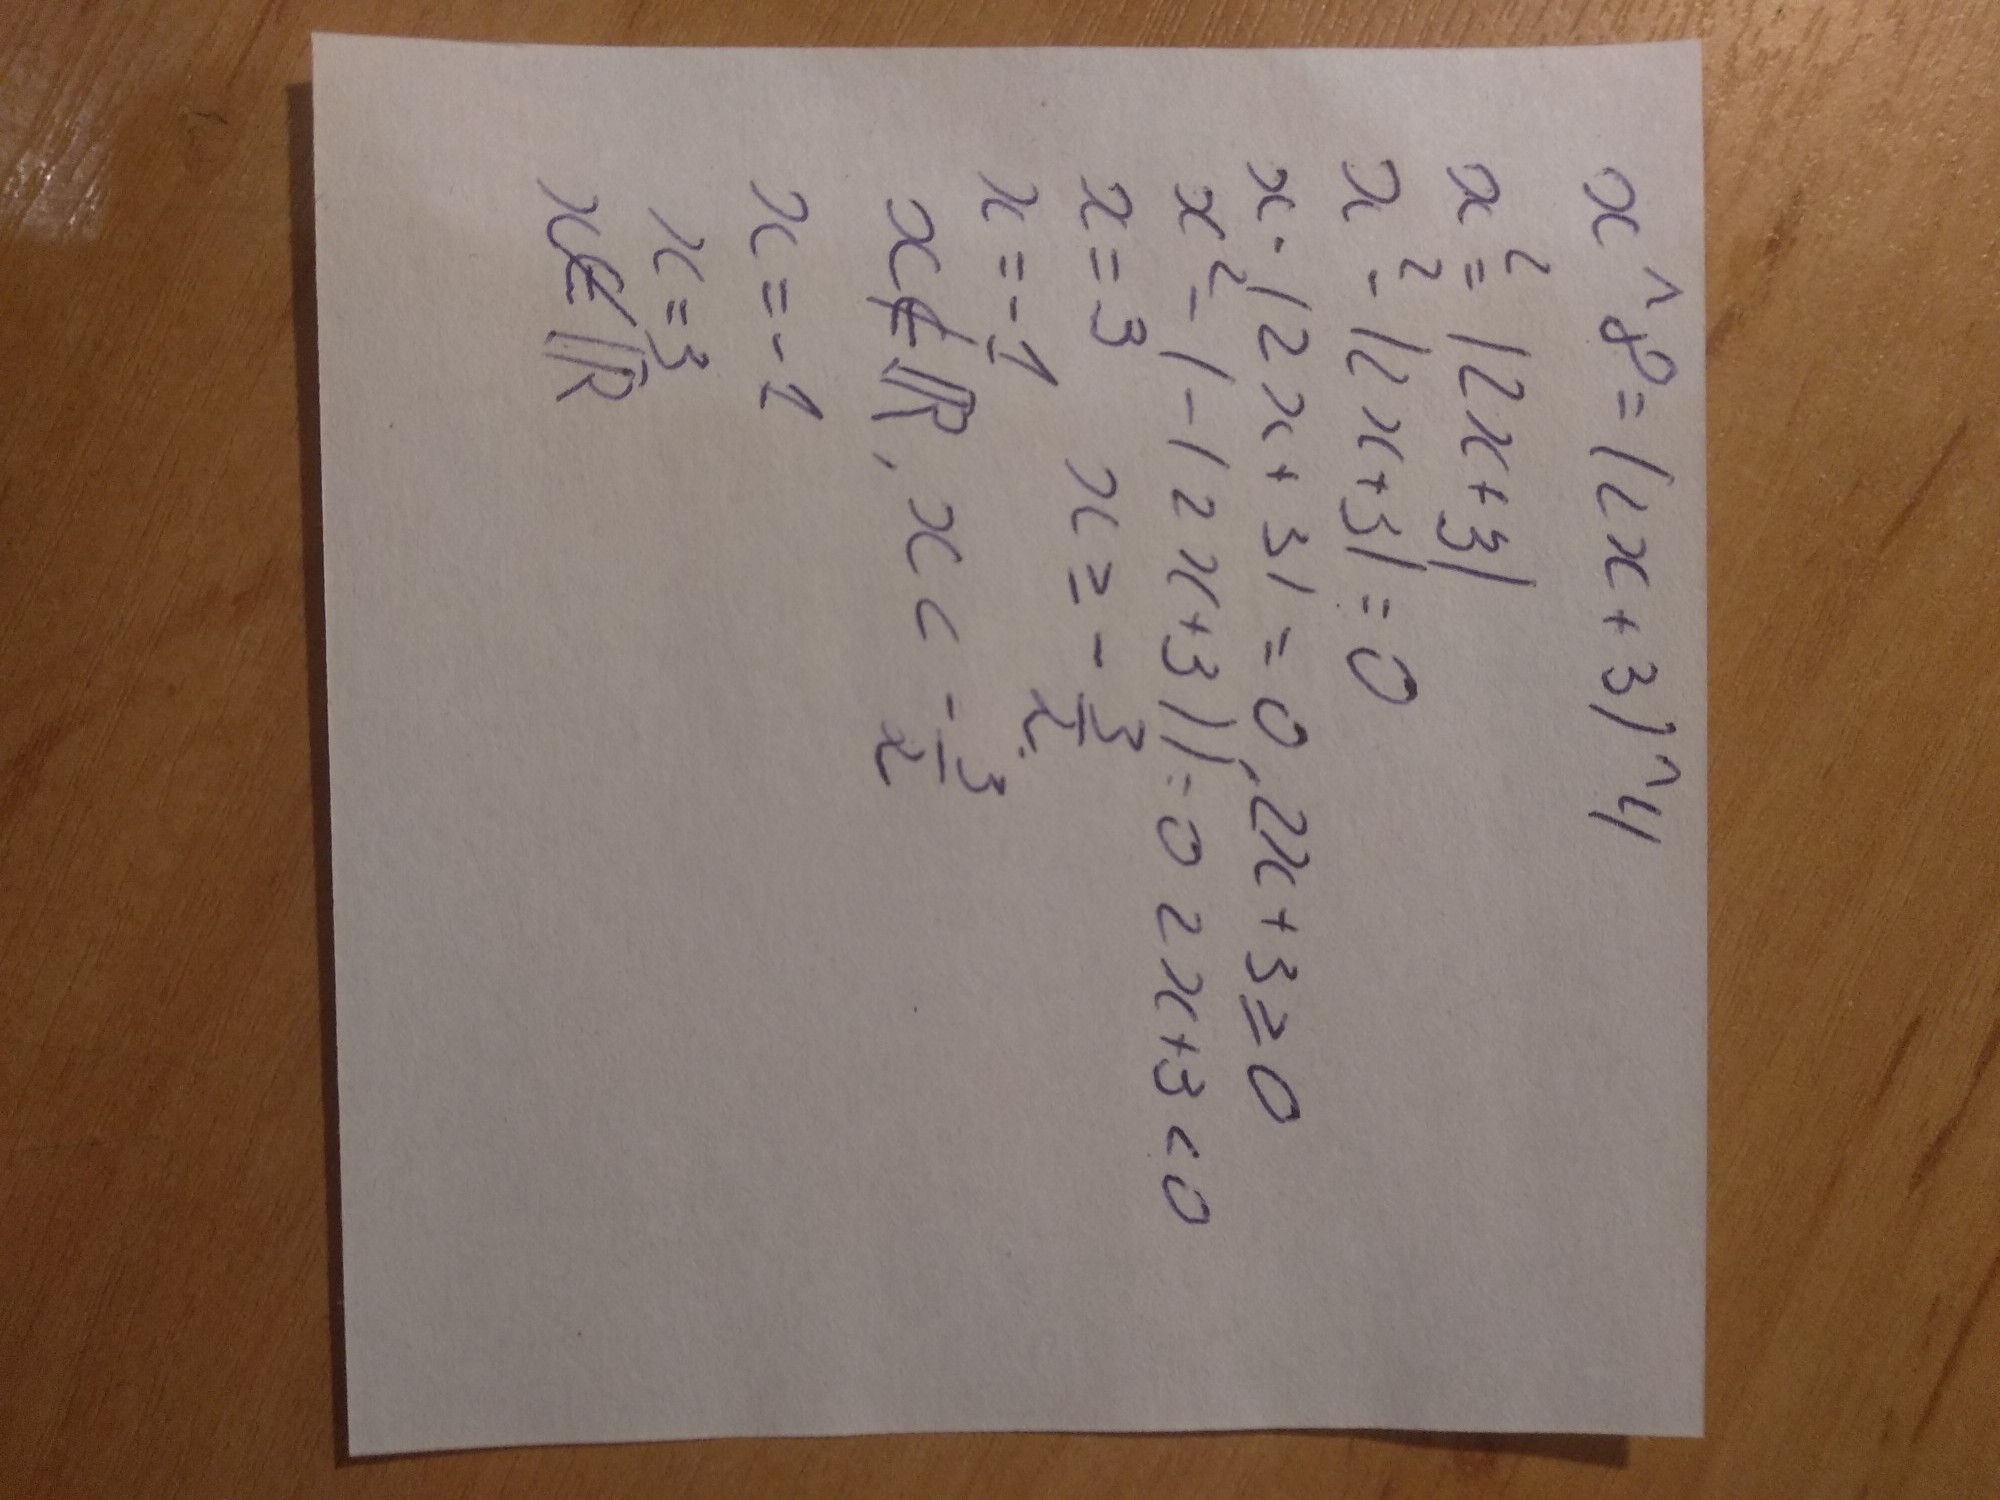 x^8=(2x+3)^4
x²=|2x+3|
x²-|2x+3|=0
x·|2x+3|=0, 2x+3≥0
x²-(-|2x+3|)=0 2x+3<0
x=3 x≥-3/2
x=-1
x∉ℝ, x<-3/2
x=-1
x=3
x∉ℝ